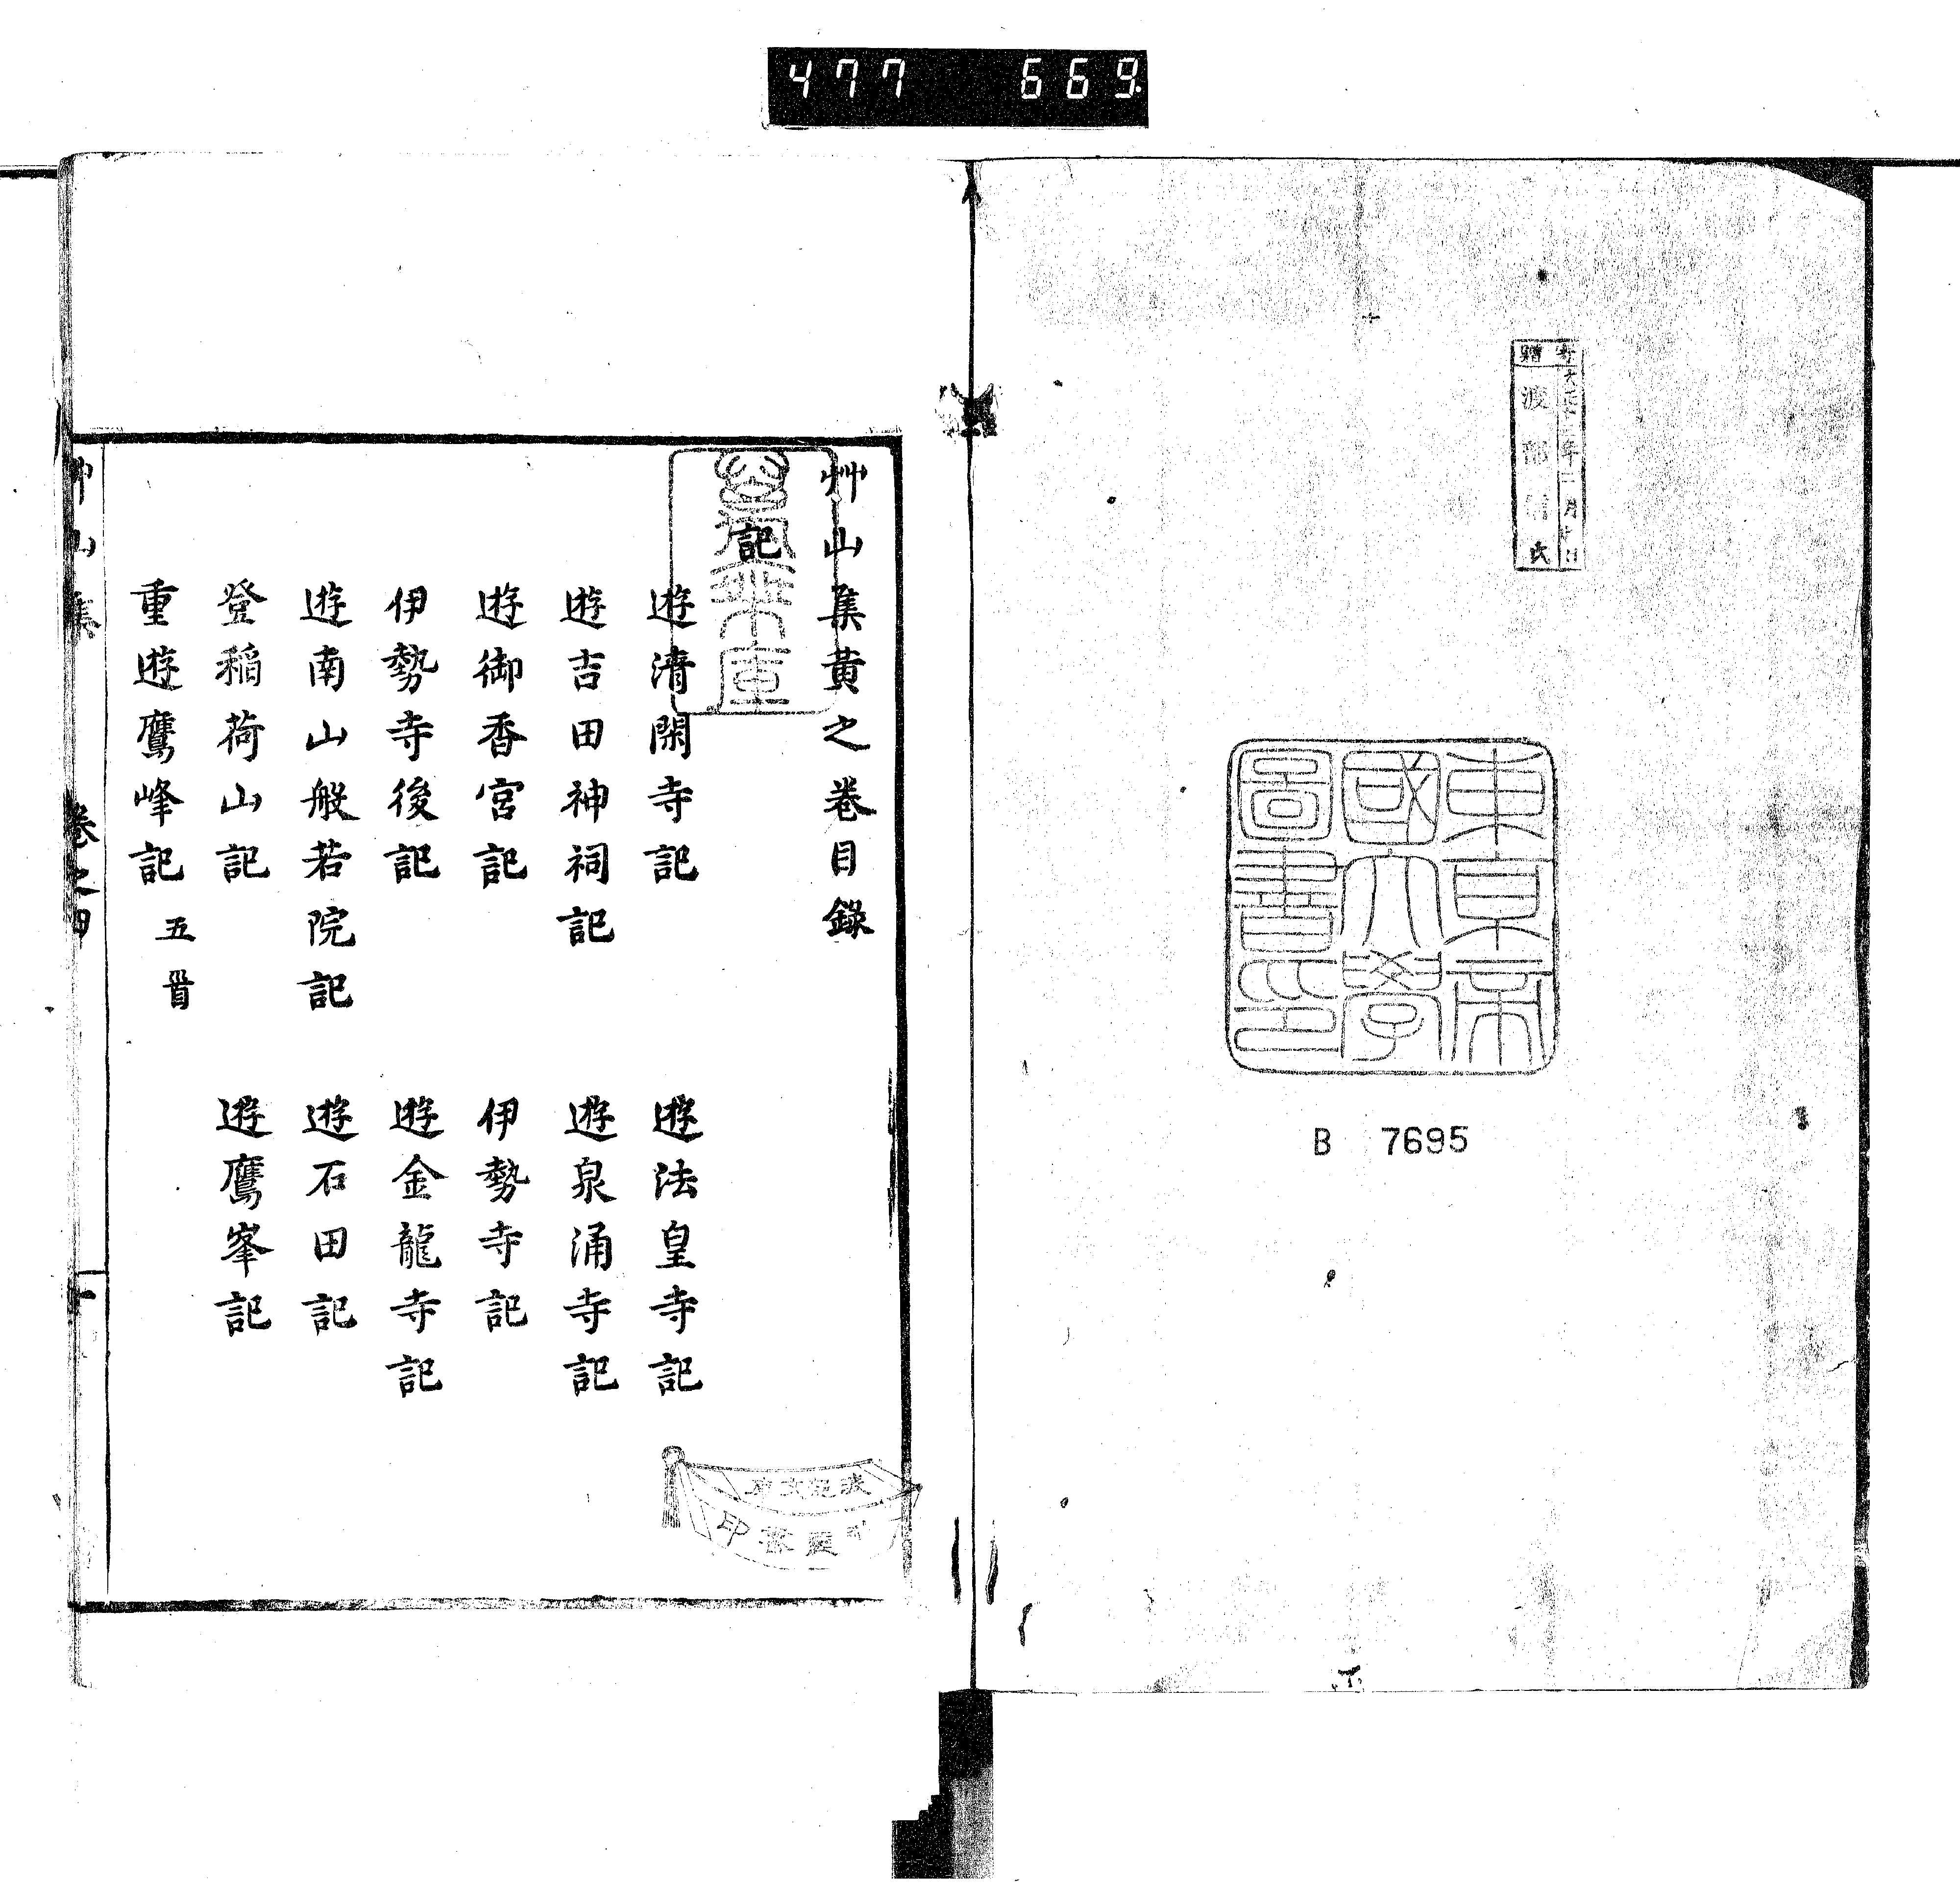 477 669.
寄贈
大正十二年一月十日
渡部信氏
東京帝
國大學
圖書印
B 7695
艸山集黃之卷目錄
記
遊清閑寺記
遊法皇寺記
遊吉田神祠記
遊泉涌寺記
遊御香宮記
伊勢寺記
伊勢寺後記
遊金龍寺記
遊南山般若院記
遊石田記
登稲荷山記
遊鷹峯記
重遊鷹峰記 五首
艸山集 卷之四